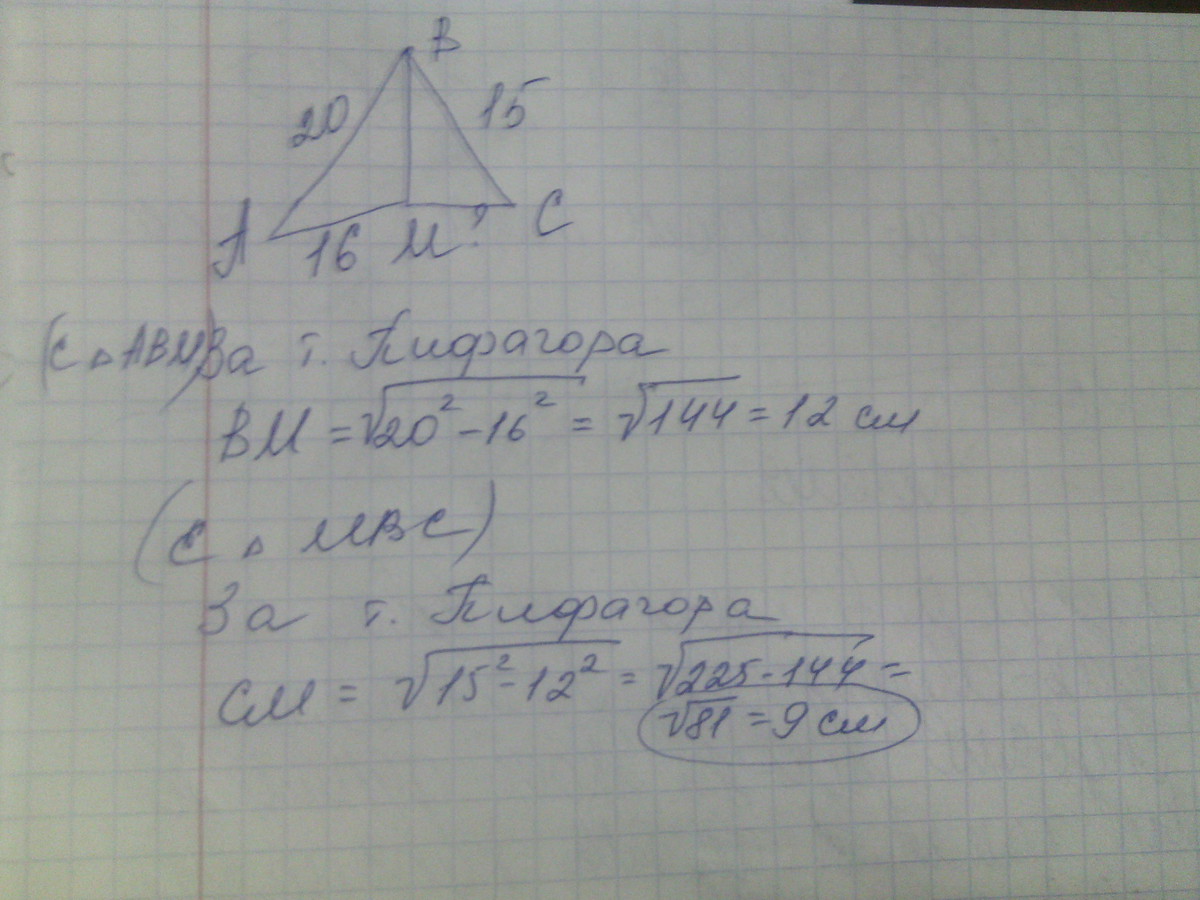 B
20 15
A 16 M ? C
(С △ ABM) За т. Пифагора
BM = √20² - 16² = √144 = 12 см
(С △ MBC)
За т. Пифагора
CM = √15² - 12² = √225 - 144 =
√81 = 9 см